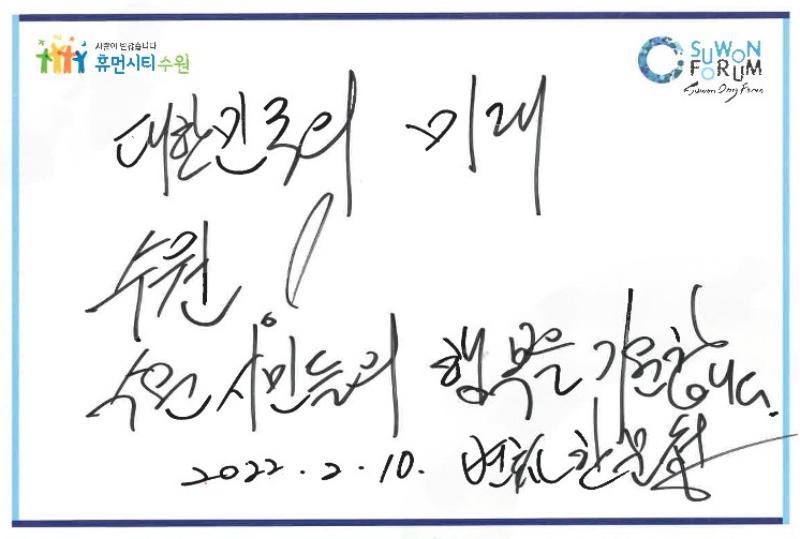 사람이 반갑습니다
휴먼시티 수원
SUWON
FORUM
대한민국의 미래
수원!
수원 시민들의 행복을 기원합니다.
2022.2.10. 변호사 한문철